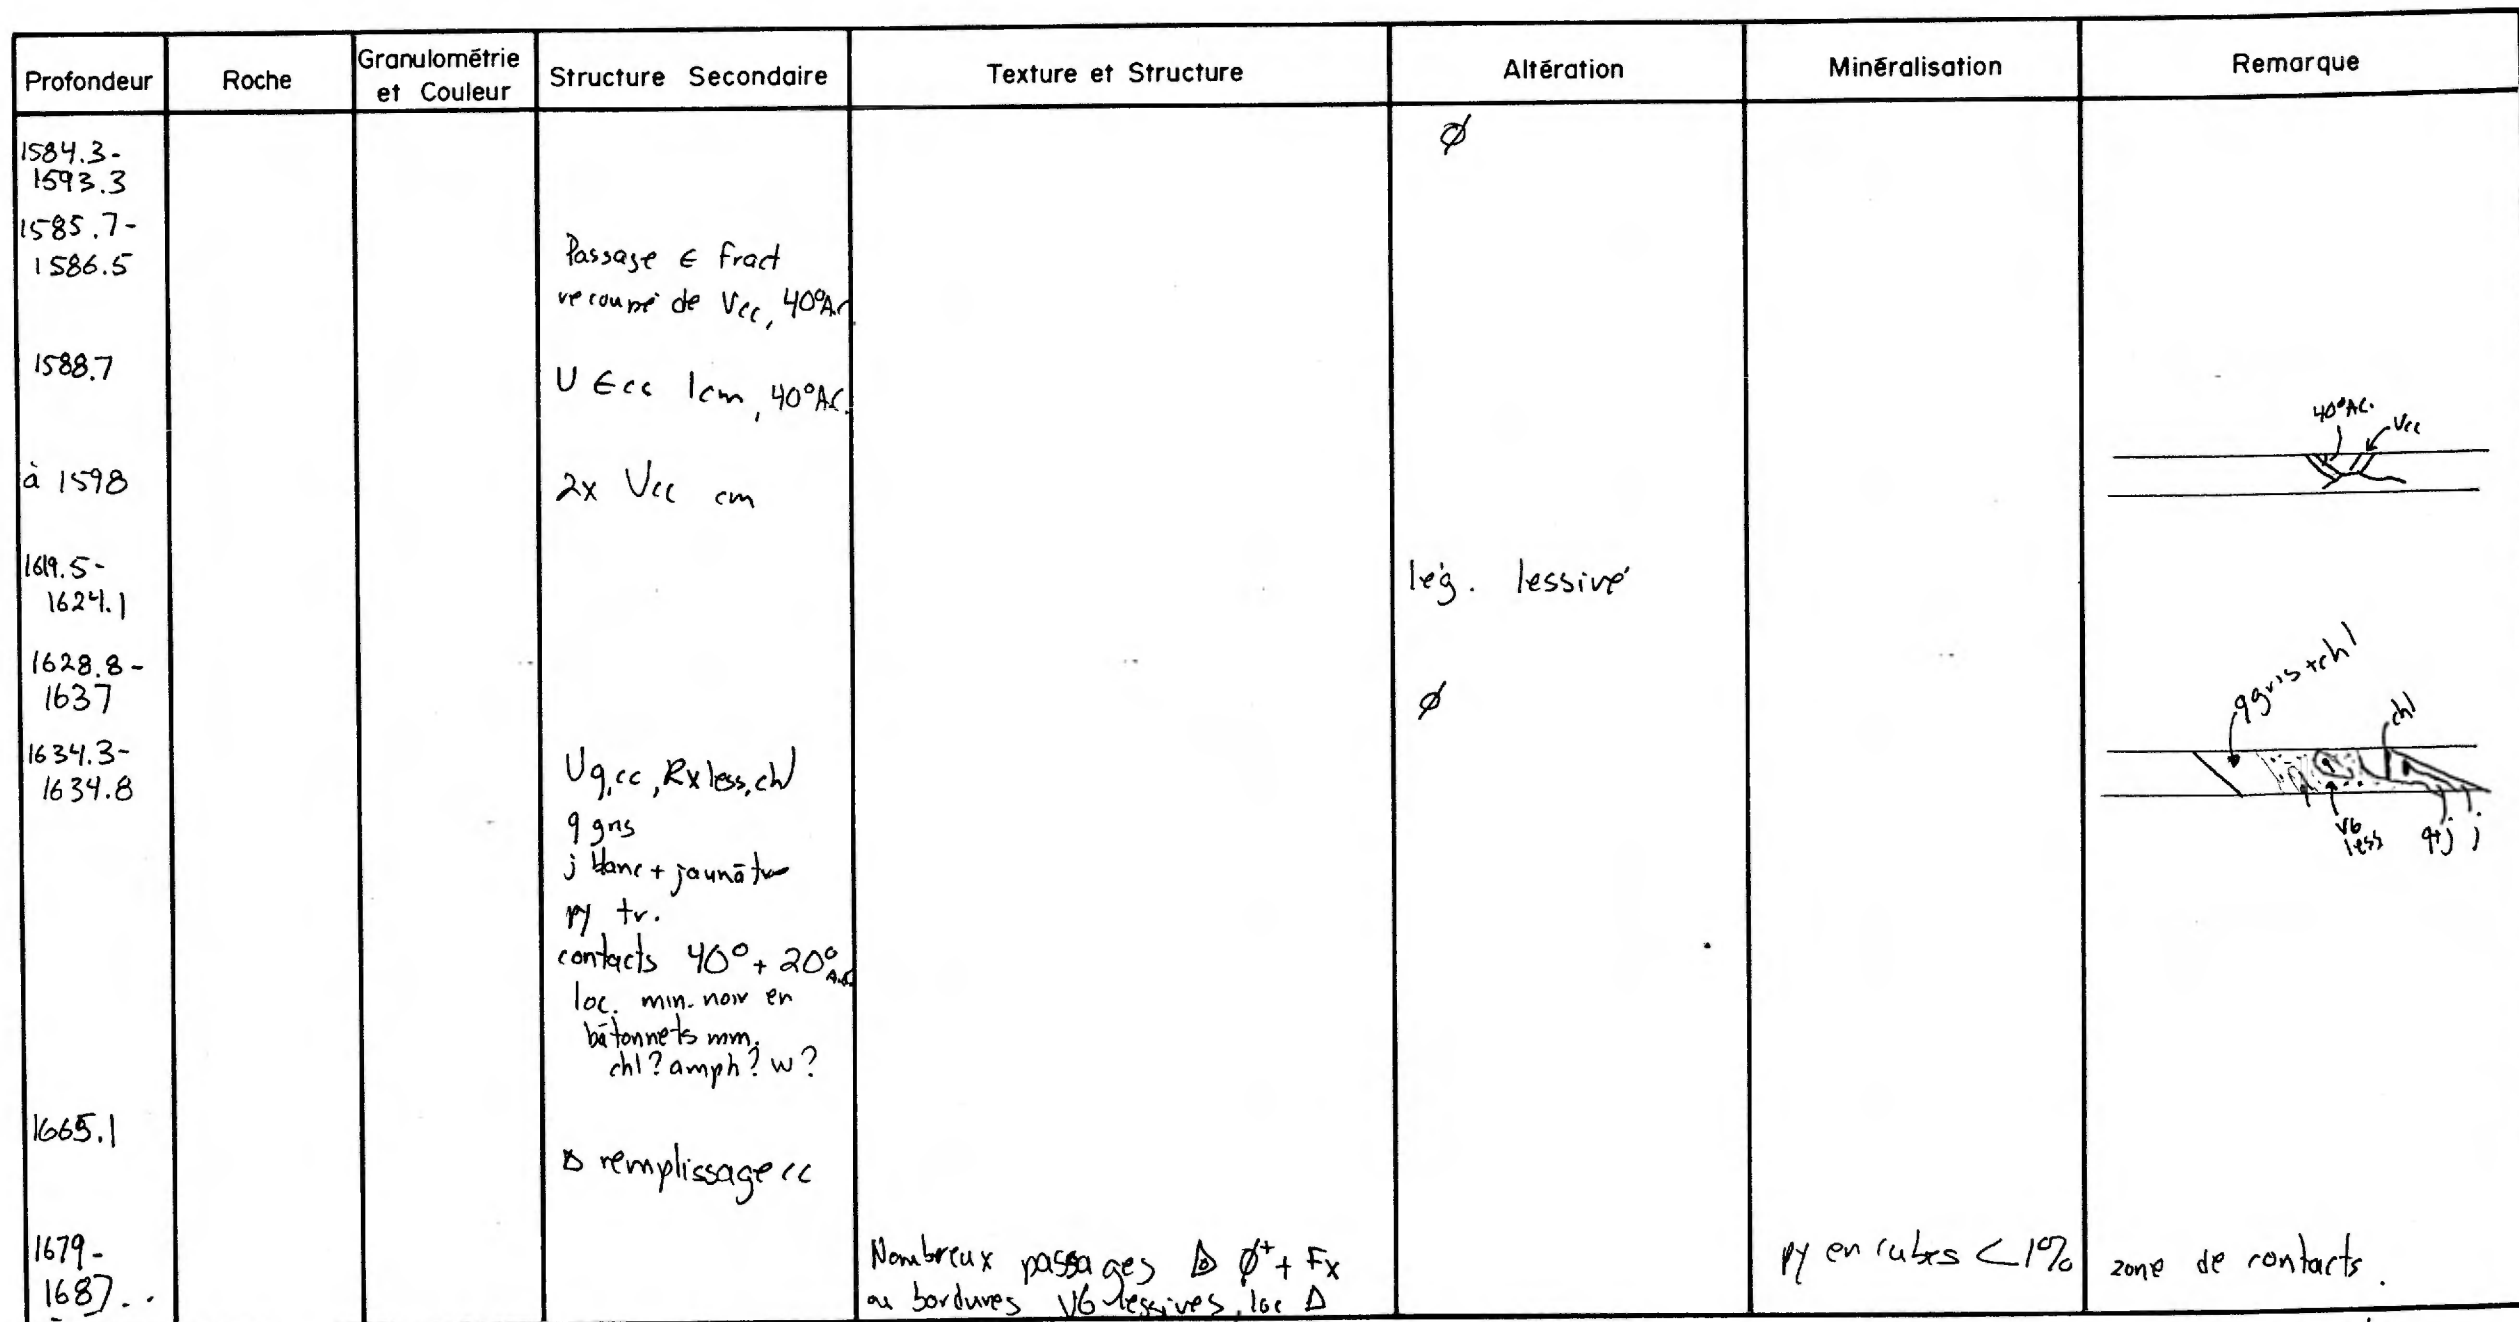 Profondeur Roche Granulométrie et Couleur Structure Secondaire Texture et Structure Altération Minéralisation Remarque
1584.3-
1593.3
Ø
1585.7-
1586.5
Passage € fract
recoupé de Vcc, 40°A.C
1588.7
V €cc 1cm, 40°A.C.
à 1598
2x Vcc cm
40°A.C.
Vcc
1619.5-
1624.1
lég. lessivé
1628.8-
1637
Ø
q gris + chl
chl
V6
less
q+j j
1634.3-
1634.8
Vq,cc, Rx less, chl
q gris
j blanc + jaunâtre
py tr.
contacts 40° + 20° A.C.
loc. min. noir en
bâtonnets mm.
chl? amph? w?
1665.1
Δ remplissage cc
1679-
1687..
Nombreux passages Δ Ø+ + Fx
ou bordures V6 lessivés, loc Δ
py en cubes <1%
zone de contacts.